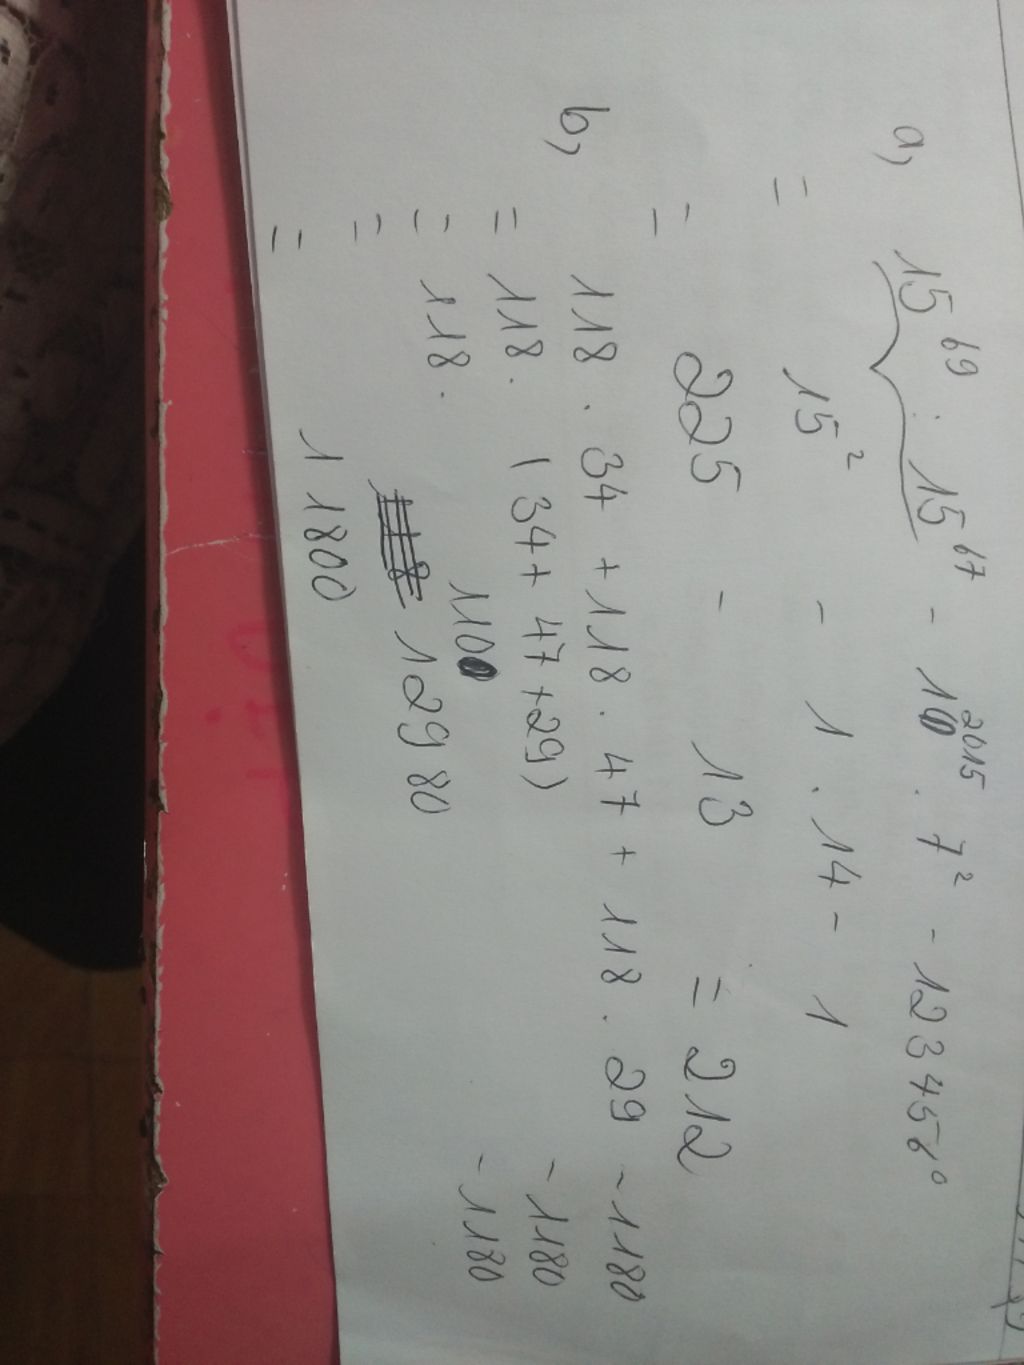 a, 15^69 : 15^67 - 1^2015 . 7^2 - 123456^0
= 15^2 - 1 . 14 - 1
= 225 - 13 = 212
b, 118 . 34 + 118 . 47 + 118 . 29 - 1180
= 118 . (34 + 47 + 29) - 1180
= 118 . 110 - 1180
= 12980
= 11800